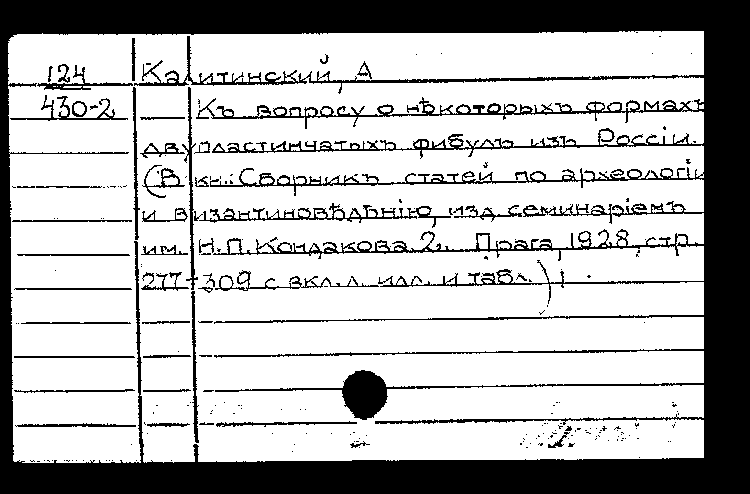 124 Калитинский, А
430-2 Къ вопросу о нѣкоторыхъ формахъ
двупластинчатыхъ фибулъ изъ Россіи.
(В кн.: Сборникъ статей по археологіи
и византиновѣдѣнію, изд. семинаріемъ
им. Н.П. Кондакова 2. Прага, 1928, стр.
277-309 с вкл. л. илл. и табл.)